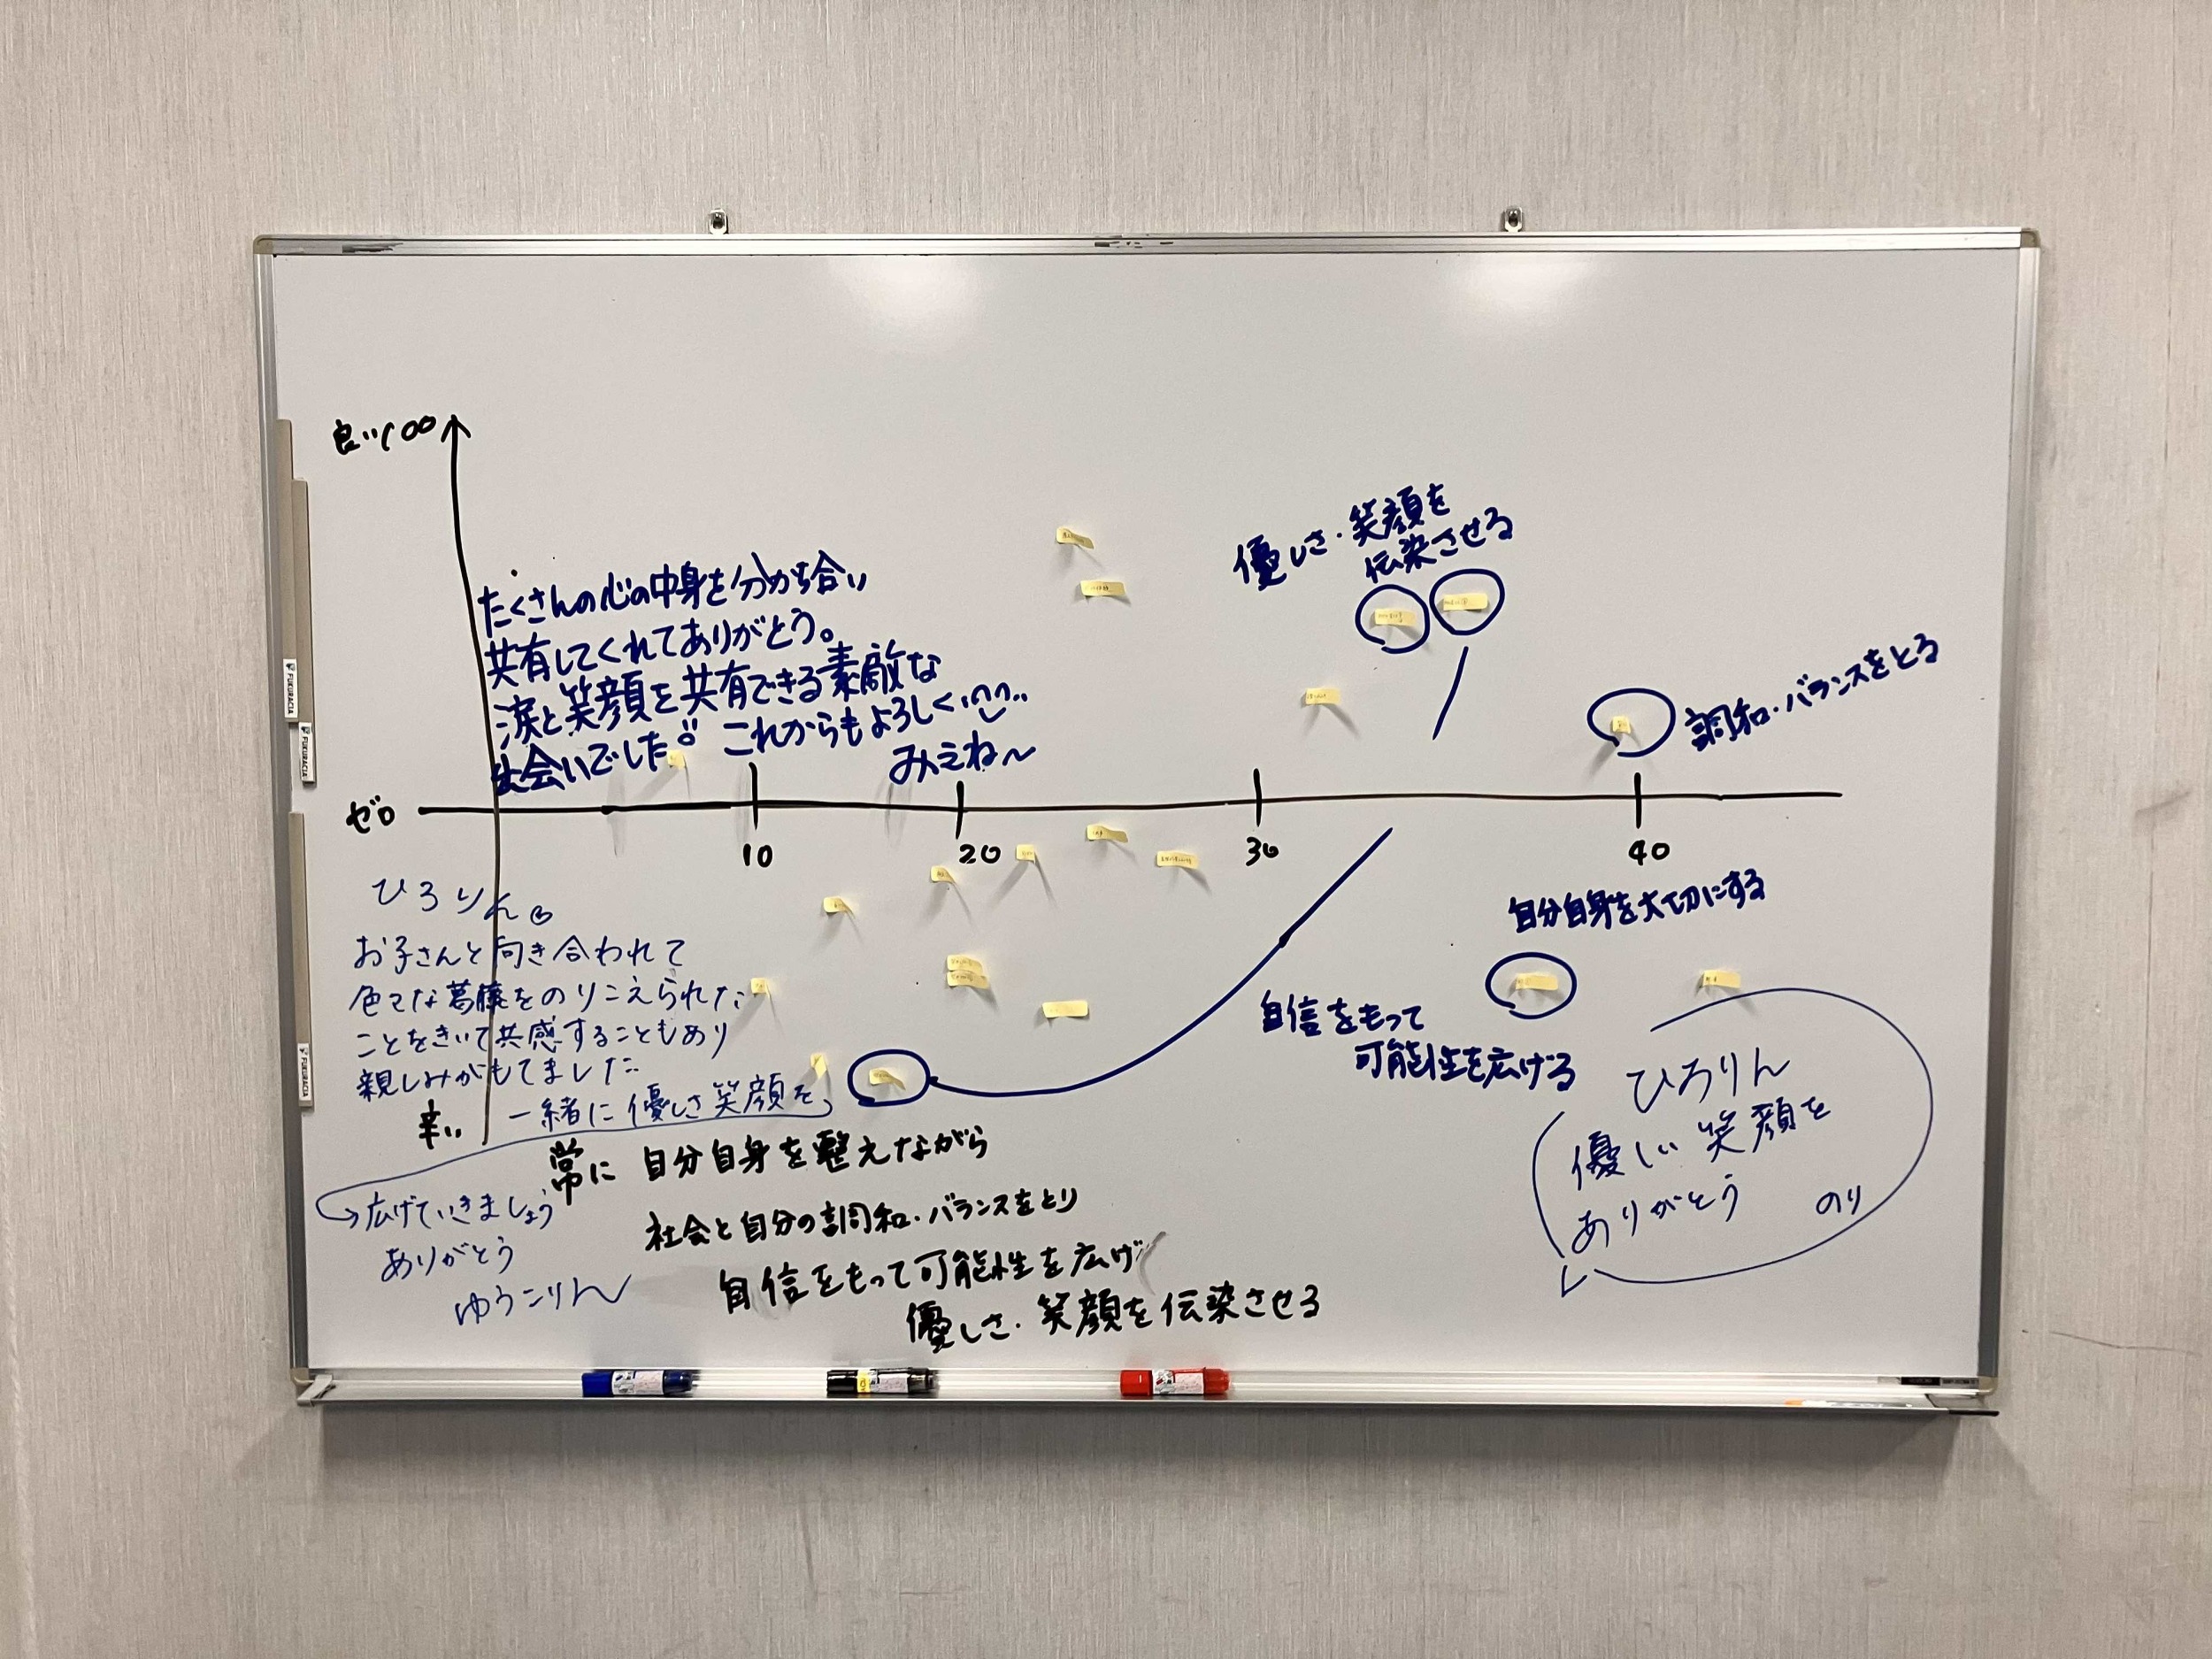 良い100
たくさんの心の中身を分かち合い
共有してくれてありがとう。
涙と笑顔を共有できる素敵な
出会いでした!! これからもよろしく
みえね〜
優しさ・笑顔を
伝染させる
調和・バランスをとる
ゼロ
10
20
30
40
ひろりん
お子さんと向き合われて
色々な葛藤をのりこえられた
ことをきいて共感することもあり
親しみがもてました
一緒に優しさ笑顔を
→広げていきましょう
ありがとう
ゆうこりん
辛い
自分自身を大切にする
自信をもって
可能性を広げる
ひろりん
優しい笑顔を
ありがとう のり
常に 自分自身を整えながら
社会と自分の調和・バランスをとり
自信をもって可能性を広げ
優しさ・笑顔を伝染させる
FUKURACIA
FUKURACIA
FUKURACIA